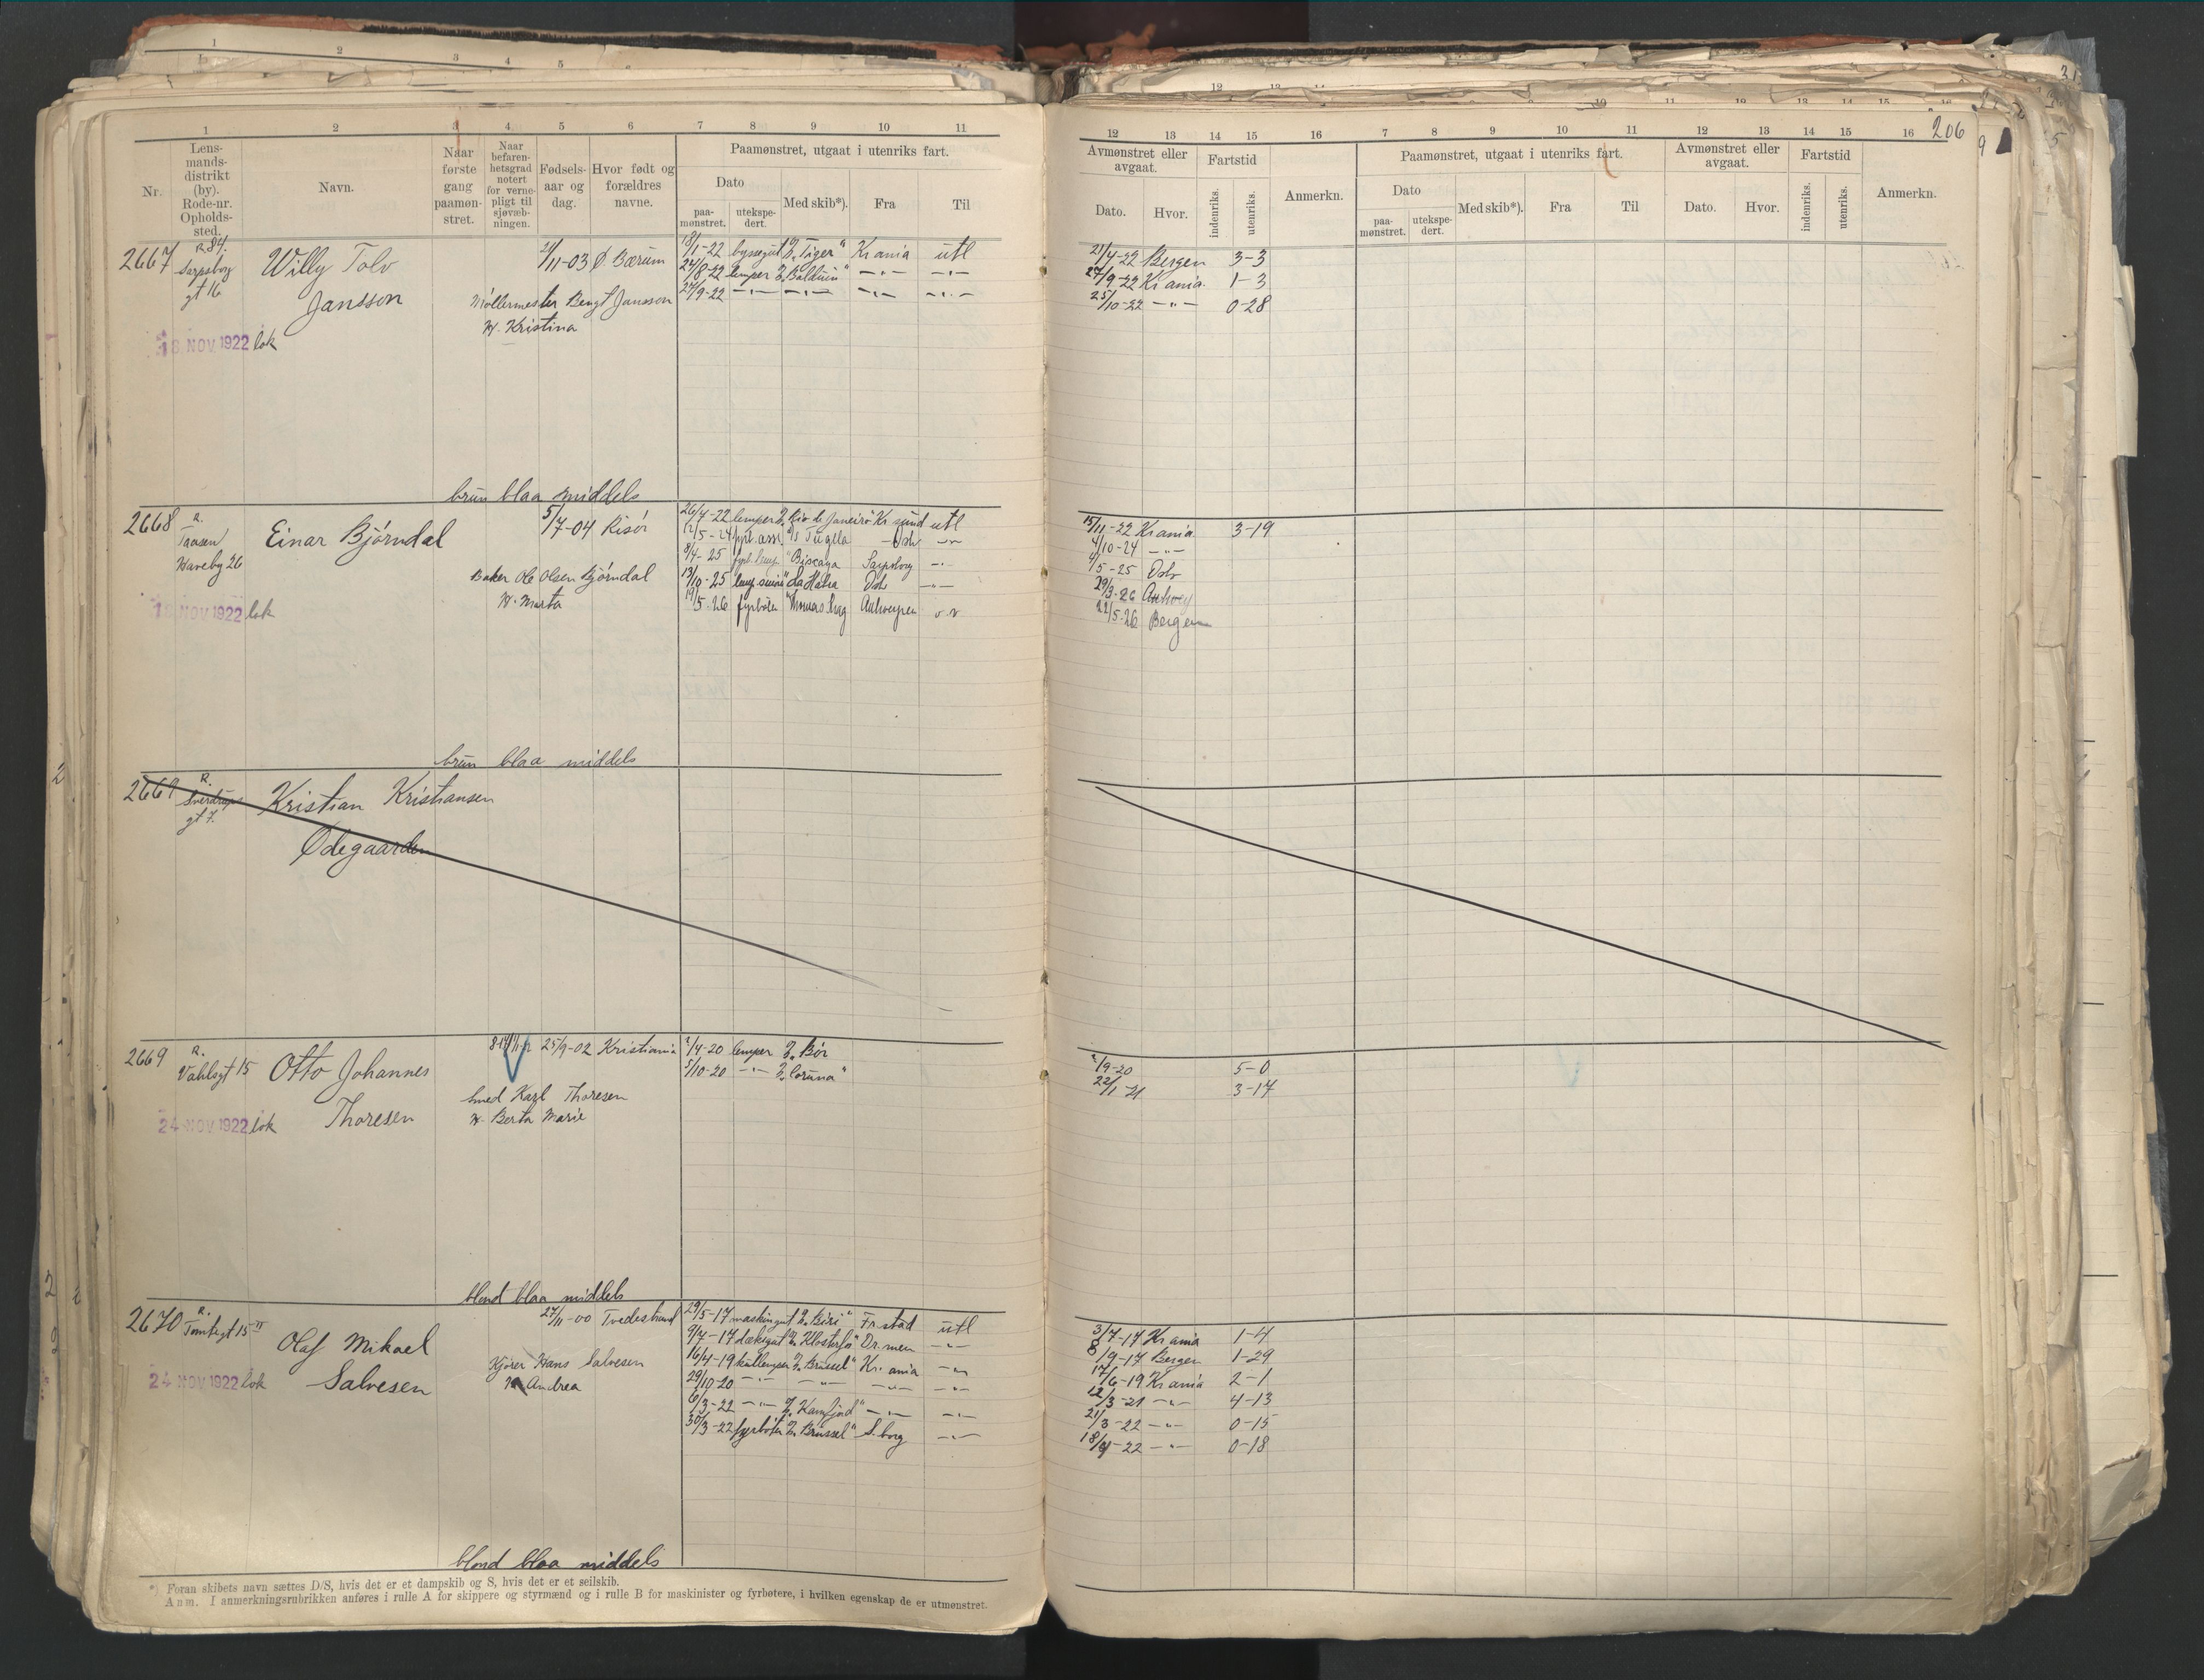 206
1 2 3 4 5 6 7 8 9 10 11
Nr.
Lens-
mands-
distrikt
(by).
Rode-nr.
Opholds-
sted.
Navn.
Naar
første
gang
paamøn-
stret.
Naar
befaren-
hetsgrad
notert
for verne-
pligt til
sjøvæb-
ningen.
Fødsels-
aar og
dag.
Hvor født og
forældres
navne.
Paamønstret, utgaat i utenriks fart.
Dato
paa-
mønstret.
utekspe-
dert.
Med skib*).
Fra
Til
12 13 14 15 16 7 8 9 10 11 12 13 14 15 16
Avmønstret eller
avgaat.
Dato.
Hvor.
Fartstid
indenriks.
utenriks.
Anmerkn.
Paamønstret, utgaat i utenriks fart.
Dato
paa-
mønstret.
utekspe-
dert.
Med skib*).
Fra
Til
Avmønstret eller
avgaat.
Dato.
Hvor.
Fartstid
indenriks.
utenriks.
Anmerkn.
2667
R 84.
Sarpsborg
gt 16
Willy Tolv
Jansson
/11-03 Ø. Bærum
Møllermester Bengt Jansson
H. Kristina
18 NOV 1922 lok
18/1-22 byssegut D. "Tiger" Kr ania utl
24/8-22 lemper D. "Balduin" -"- -"-
27/9-22 -"- -"- -"- -"-
21/4-22 Bergen 3-3
27/9-22 Kr ania 1-3
25/10-22 -"- 0-28
brun blaa middels
2668
R.
Taasen
Haveby 26
Einar Bjørndal
5/7-04 Risør
Baker Ole Olsen Bjørndal
H. Marta
NOV 1922 lok
26/4-22 lemper D. "Rio de Janeiro" Kr sund utl
12/5-24 fyrb. ass. "Tugela Oslo -"-
8/4-25 "Biscaya Sarpsborg -"-
13/10-25 "La Habra Oslo -"-
19/5-26 fyrbøter "Thomas Antwerpen
15/11-22 Kr ania 3-19
4/10-24 -"-
4/5-25 Oslo
29/3-26 Antwerp
22/5-26 Bergen
brun blaa middels
2669
R.
Sverdrups
gt 7.
Kristian Kristiansen
Ødegaarden
2669
R.
Vahlsgt 15
Otto Johannes
Thoresen
25/9-02 Kristiania
Smed Karl Thoresen
H. Berta Marie
24 NOV 1922 lok
2/4-20 lemper D. "Bør
5/10-20 -"- D. "Coruna"
2/9-20 5-0
22/1-21 3-17
blond blaa middels
2670
R.
Tomtegt 15 II
Olaf Mikael
Salvesen
27/11-00 Tvedestrand
Kjører Hans Salvesen
H. Andrea
24 NOV 1922 lok
29/5-17 maskingut D. "Biri" Fr. stad utl
9/7-17 dæksgut D. "Klosterfos" Dr. men -"-
16/4-19 kullemper D. "Brüssel" Kr. ania -"-
29/10-20 -"- -"- -"- -"-
6/3-22 -"- D. "Kamfjord" -"- -"-
30/3-22 fyrbøter D. "Brüssel" S. borg -"-
3/7-17 Kr ania 1-4
8/9-17 Bergen 1-29
17/6-19 Kr ania 2-1
12/3-21 -"- 4-13
21/3-22 -"- 0-15
18/4-22 -"- 0-18
blond blaa middels
*) Foran skibets navn sættes D/S, hvis det er et dampskib og S, hvis det er et seilskib.
Anm. I anmerkningsrubrikken anføres i rulle A for skippere og styrmænd og i rulle B for maskinister og fyrbøtere, i hvilken egenskap de er utmønstret.